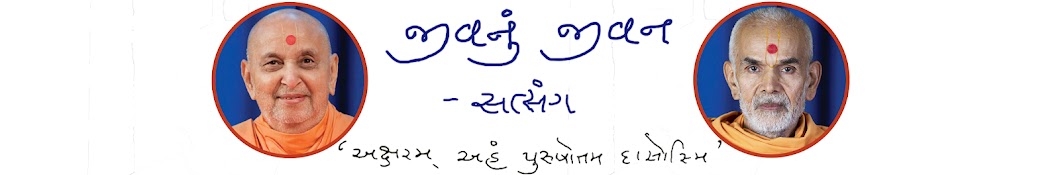 જીવનું જીવન
- સત્સંગ
‘અક્ષરમ્ અહં પુરુષોત્તમ દાસોસ્મિ’